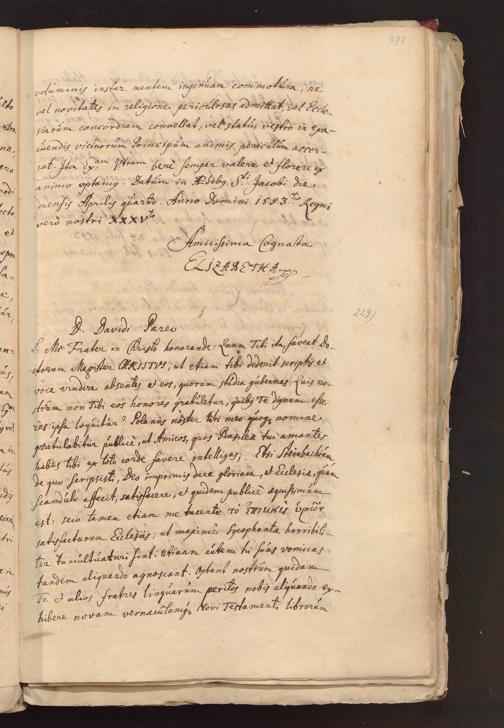 voluminis instar mentem ingenuam commotura, ne
vel novitates in religione periculosas admittat, vel Eccle-
siarum concordiam convellat, vel statui vestro in exa-
cuendis vicinorum Principum animis periculum accer-
sat. Ita Ex.am Vtram bene semper valere et florere ex
animo optamus. Datum in Ædibg S.ti Jacobi die
mensis Aprilis quarto. Anno Domini 1593.tio Regni
vero nostri XXXV.to
Amicissima Cognata
ELIZABETHA
229)
D. Davidi Pareo
S. Mi Frater in Christo honorande. Quum Tibi ita faveat Do-
ctorum Magister CHRISTVS, ut etiam tibi dederit scriptis et
voce erudire absentes et eos, quorum studia gubernas. Quis no-
strûm non tibi eos honores gratuletur, quibg Te dignum esse
res ipsa loquitur? Polanus noster tibi meo quoq nomine
gratulabitur publicè, ut Amicos, quos Basileæ tui amantes
habes tibi ex toto corde favere intelliges. Etsi Steinbachium
de quo scripsisti, Deo imprimis dare gloriam, et Ecclesiæ, quam
scandalo affecit, satisfacere, et quidem publicè æquissimum
est: scio tamen etiam me tacente τὸ ἐπιεικὲς
satisfacturum Ecclesiæ: ut maximè Sycophantæ horribili-
ter tumultuaturi sint. Utinam autem hi suas vomicas
tandem aliquando agnoscant. Optant nostrûm quidam
Te et alios fratres linguarum peritos nobis aliquando ex-
hibere novam vernaculamq Novi Testamenti librorum